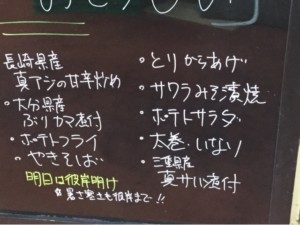 長崎県産
真アジの甘辛炒め
・大分県産
ぶりカマ煮付
・ポテトフライ
・やきそば
・とりからあげ
・サワラみそ漬焼
・ポテトサラダ
・太巻・いなり
・三重県産
真サバ煮付
明日は彼岸明け
暑さ寒さも彼岸まで!!